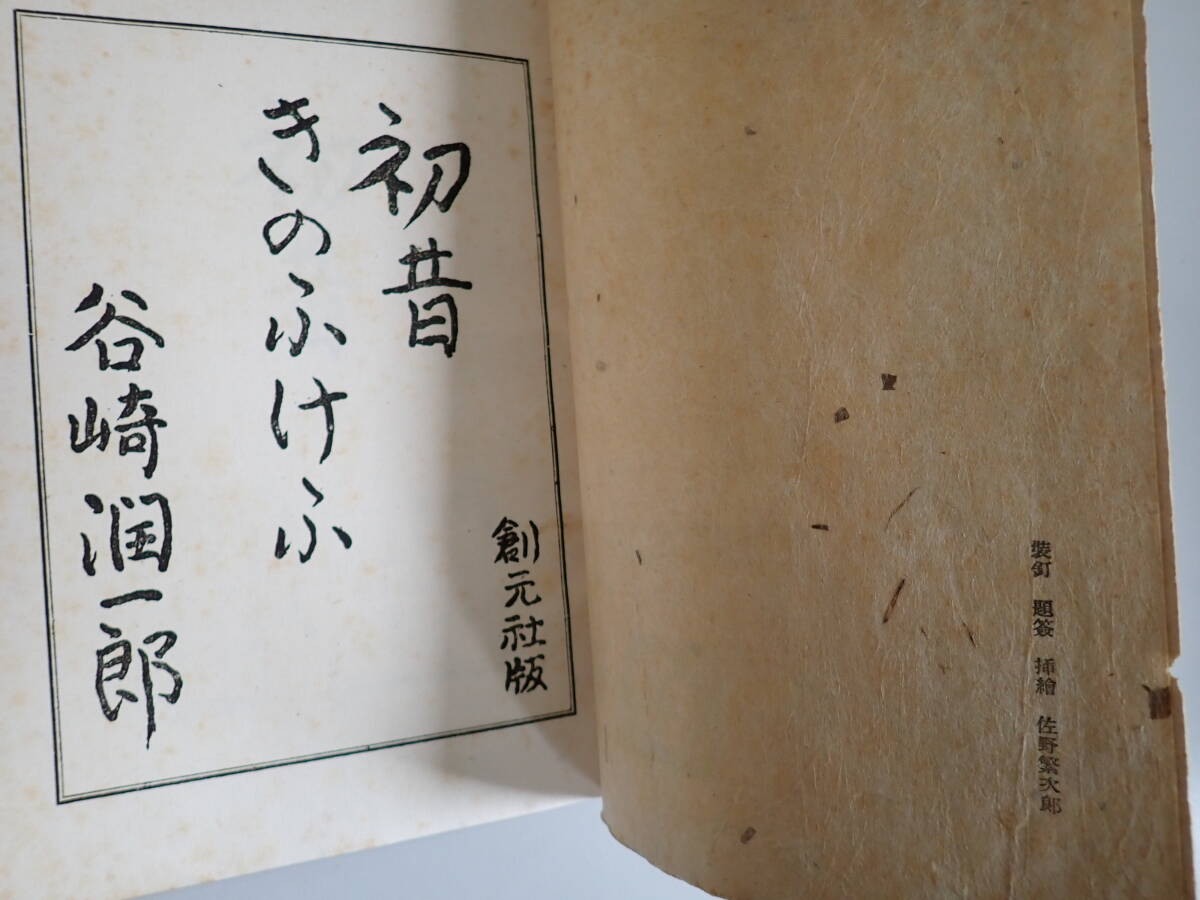 装釘　題簽　挿繪　佐野繁次郎
創元社版
初昔
きのふけふ
谷崎潤一郎